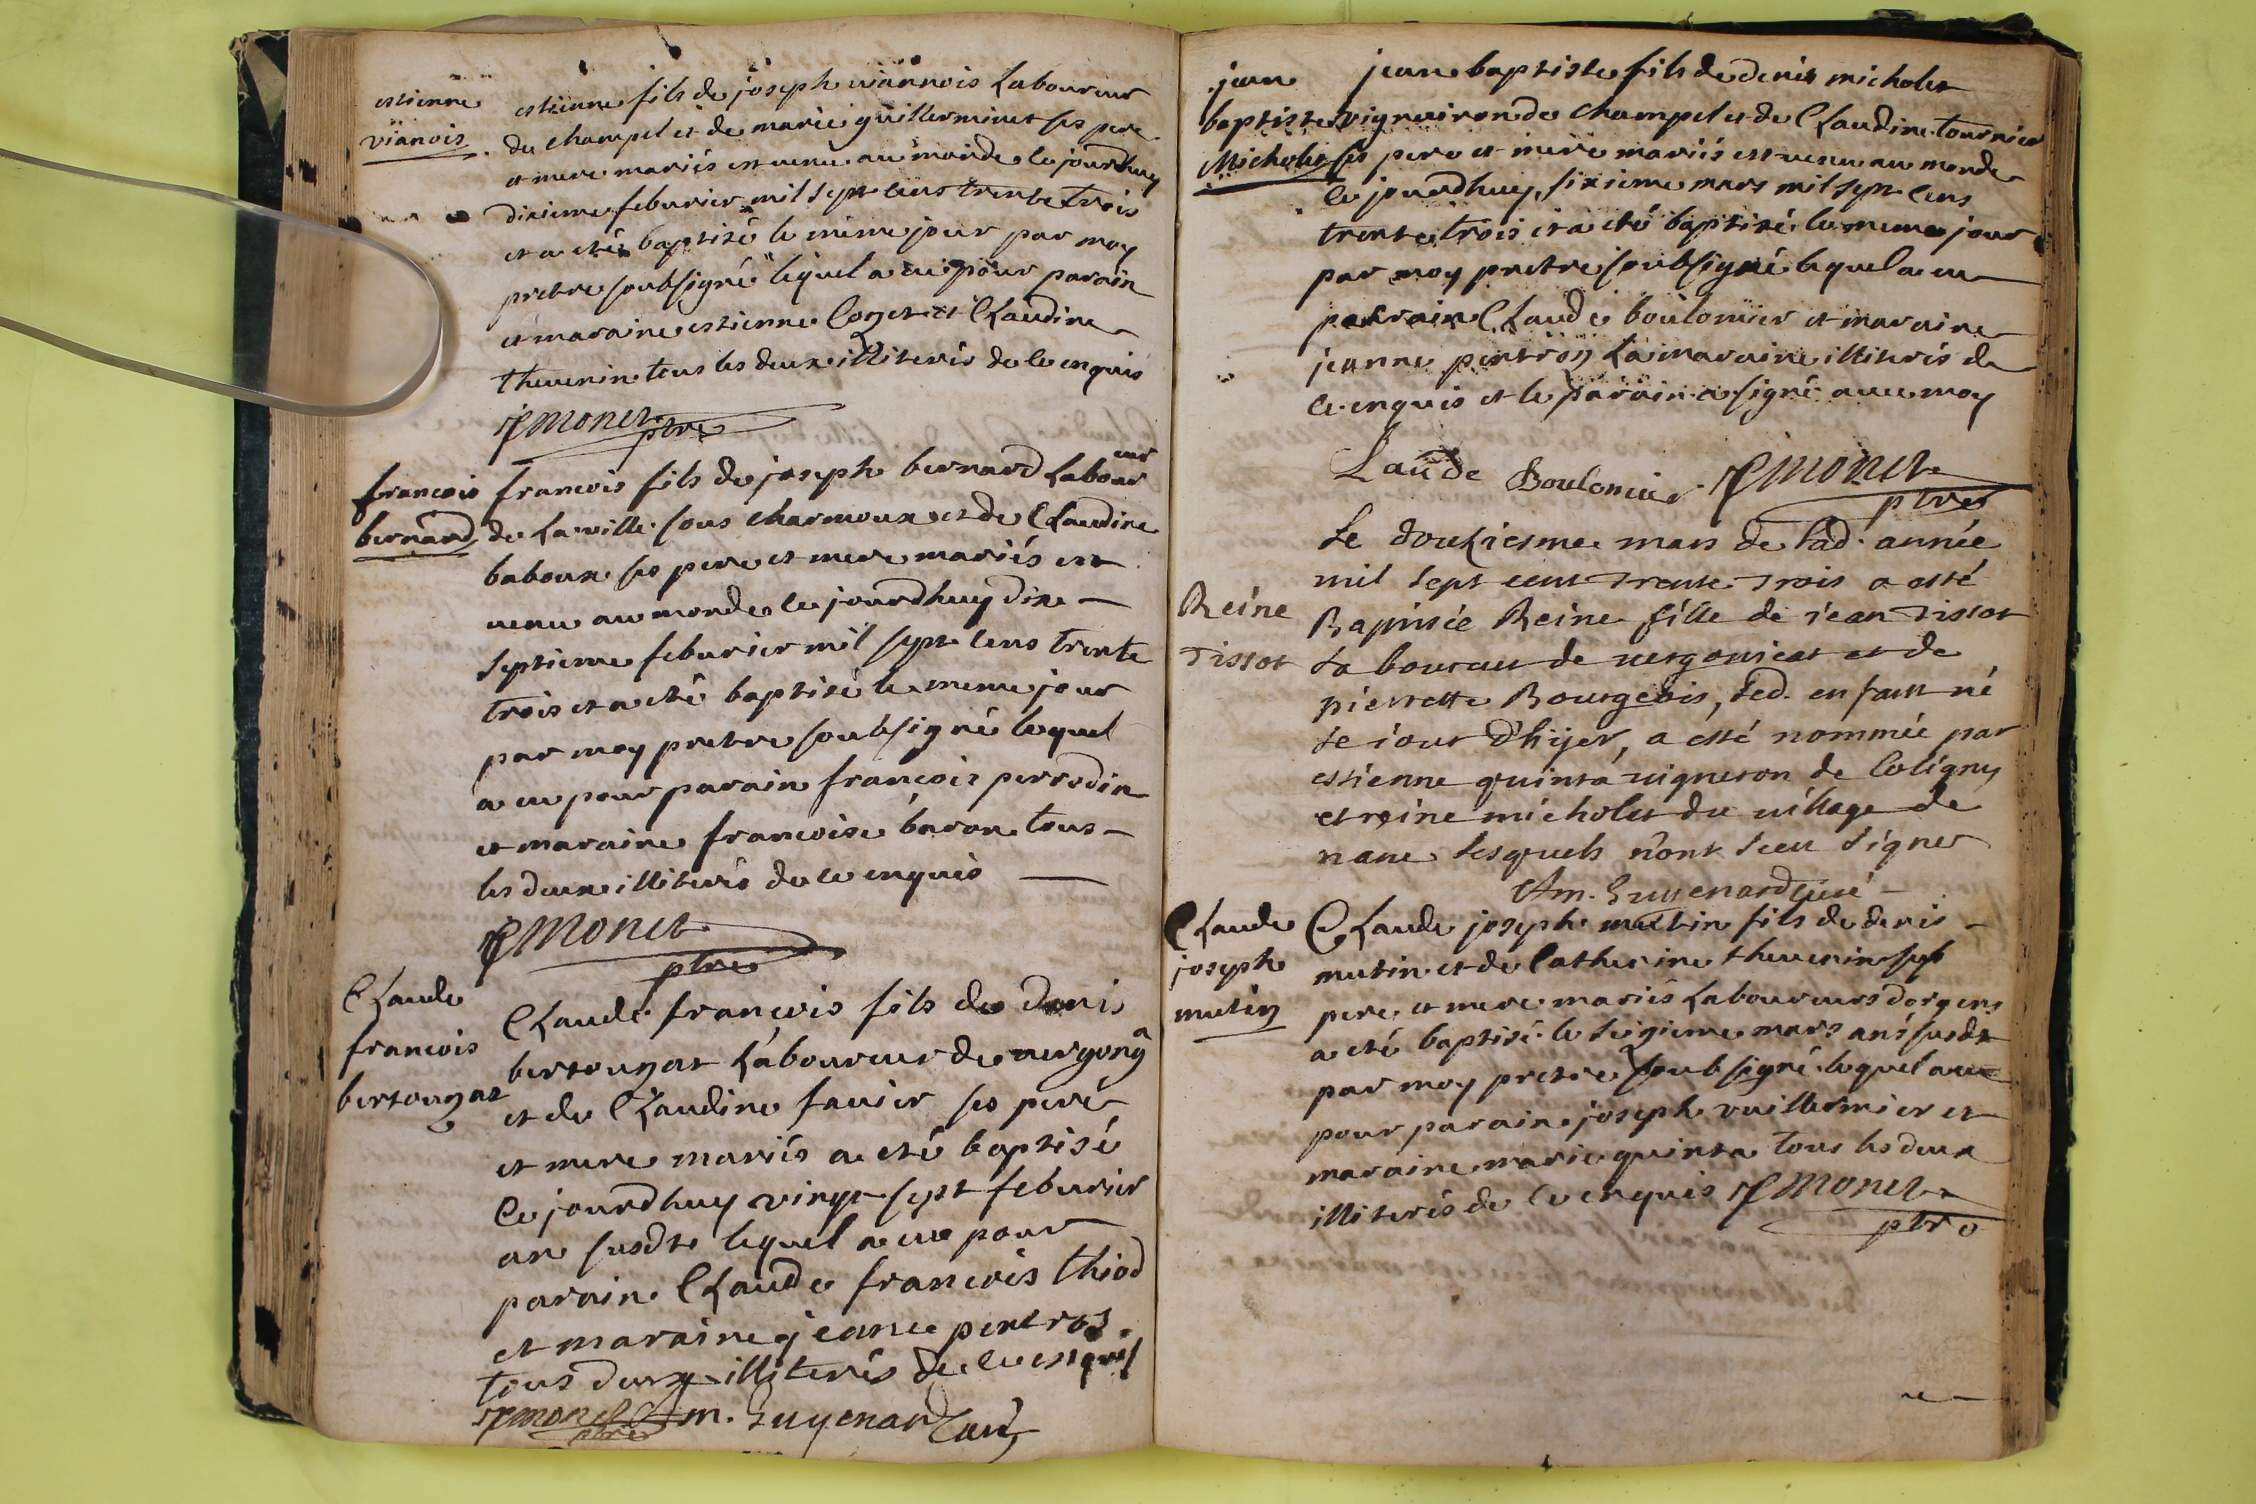 estienne
vianois
estienne fils de joseph viannois Laboureur
de champel et de marie guillerminet ses pere
et mere mariés est venu au monde le jourdhuy
dixieme feburier mil sept cens trente trois
et a eté baptisé le même jour par moy
pretre soubsigné lequel a eu pour parain
et maraine estienne Coget et Claudine
thevenin tous les deux illiterés de ce enquis
Monet ptre
francois
bernard
francois fils de joseph bernard Laboureur
de La ville sous charmoux et de Claudine
baboux ses pere et mere mariés est
venu au monde le jourdhuy dix
septieme feburier mil sept cens trente
trois et a eté baptisé le meme jour
par moy pretre soubsigné lequel
a eu pour parain francois perrodin
et maraine francoise baron tous
les deux illiterés de ce enquis
Monet
ptre
Claude
francois
bertougat
Claude francois fils de denis
bertougat Laboureur de vergong
et de Claudine favier ses pere
et mere mariés a eté baptisé
Le jourdhuy vingt sept feburier
an susdt lequel a eu pour
parain Claude francois thiod
et maraine jeanne
tous deux illiterés de ce enquis
Monet ptre Am. Guyenard Curé
jean
baptiste
Micholet
jean baptiste fils de denis micholet
vigneiron de champel et de Claudine tournier
ses pere et mere mariés est venu au monde
le jourdhuy sixieme mars mil sept cens
trente trois et a eté baptisé le meme jour
par moy pretre soubsigné lequel a eu
parrain Claude boulomier et maraine
jeanne pentroz La maraine illiterés de
ce enquis et le parain a signé avec moy
Laude Boulomier Monet
ptre
Reine
Tissot
Le douziesme mars de lad. année
mil sept cent trente trois a esté
Baptisée Reine fille de jean Tissot
Laboureur de vergonjeat et de
pierrette Bourgeois, led. enfant né
le jour d'hyer, a esté nommée par
estienne quinta vigneron de Coligny
et reine micholet du village de
nanc lesquels n'ont sceu signer
Am. Guyenard Curé
Claude
joseph
mutin
Claude joseph mutin fils de denis
mutin et de Catherine thevenin ses
pere et mere mariés Laboureurs dorgens
a eté baptisé le seizieme mars an susdt
par moy pretre soubsigné lequel a eu
pour parain joseph vuillermier et
maraine marie quinta tous les deux
illiterés de ce enquis Monet
ptre